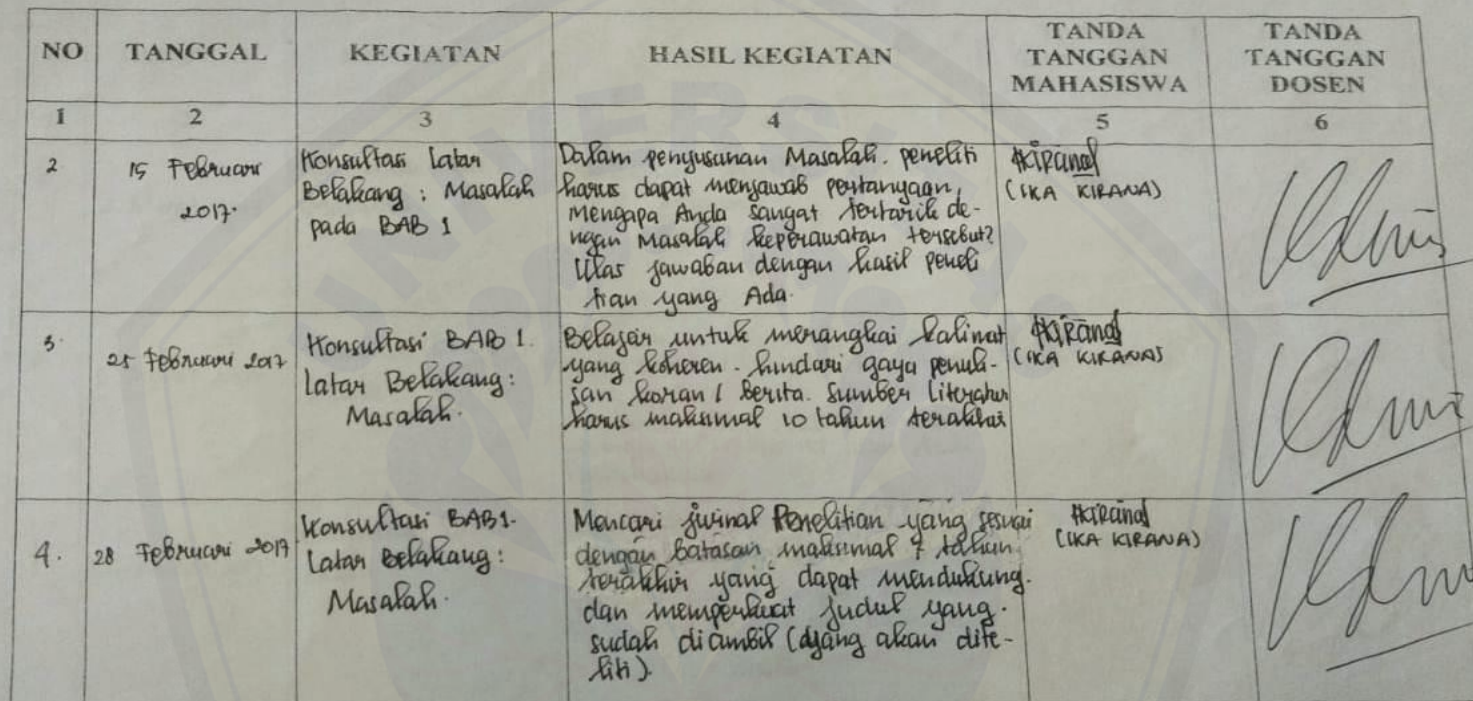 NO
TANGGAL
KEGIATAN
HASIL KEGIATAN
TANDA
TANGGAN
MAHASISWA
TANDA
TANGGAN
DOSEN
1
2
3
4
5
6
2
15 Februari
2017.
Konsultasi Latar
Belakang : Masalah
pada BAB 1
Dalam penyusunan Masalah. peneliti
harus dapat menjawab pertanyaan,
Mengapa Anda sangat tertarik de-
ngan Masalah keperawatan tersebut?
Ulas jawaban dengan hasil peneli
tian yang Ada.
Kirana
(IKA KIRANA)
3.
25 Februari 2017
Konsultasi BAB 1.
Latar Belakang:
Masalah.
Belajar untuk merangkai kalimat
yang koheren. hindari gaya penuli-
san koran / berita. Sumber Literatur
harus maksimal 10 tahun terakhir
Kirana
(IKA KIRANA)
4.
28 Februari 2017
Konsultasi BAB1.
Latar Belakang:
Masalah.
Mencari jurnal Penelitian yang sesuai
dengan batasan maksimal 7 tahun
terakhir yang dapat mendukung.
dan memperkuat judul yang.
sudah diambil (yang akan dite-
liti).
Kirana
(IKA KIRANA)
UNIVERSITAS